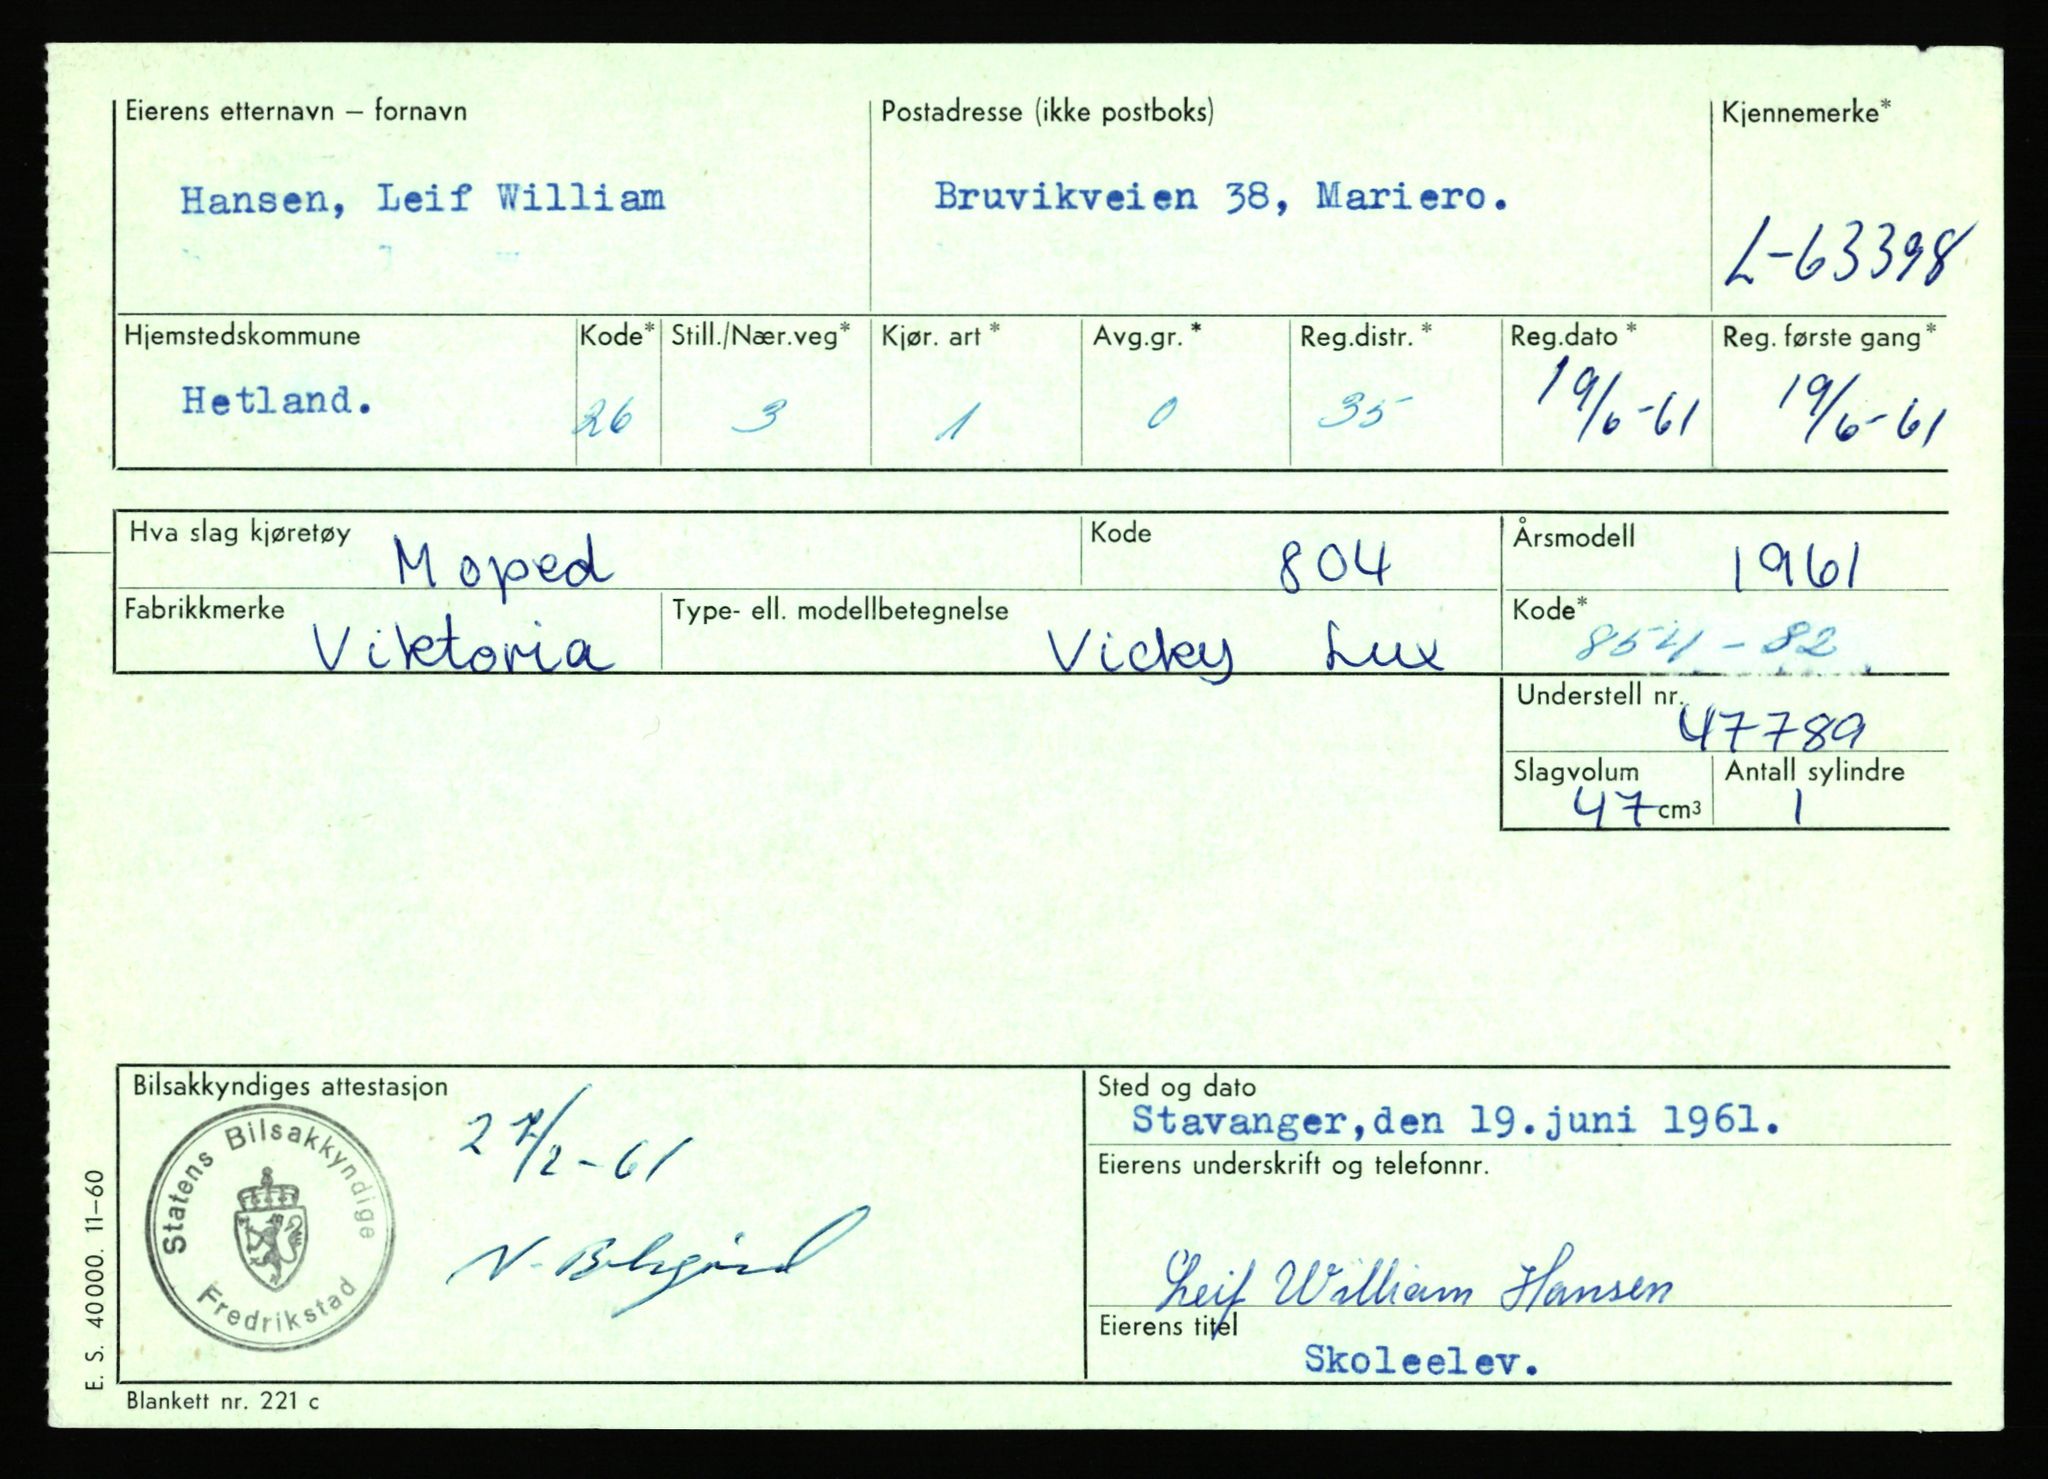 Eierens etternavn – fornavn
Hansen, Leif William
Postadresse (ikke postboks)
Bruvikveien 38, Mariero.
Kjennemerke*
L-63398
Hjemstedskommune
Hetland.
Kode*
26
Still./Nær.veg*
3
Kjør. art*
1
Avg.gr.*
0
Reg.distr.*
35
Reg.dato*
19/6-61
Reg. første gang*
19/6-61
Hva slag kjøretøy
Moped
Kode
804
Årsmodell
1961
Fabrikkmerke
Viktoria
Type- ell. modellbetegnelse
Vicky Lux
Kode*
854-82
Understell nr.
47789
Slagvolum
47 cm³
Antall sylindre
1
Bilsakkyndiges attestasjon
Statens Bilsakkyndige
Fredrikstad
27/2-61
N.
Sted og dato
Stavanger, den 19. juni 1961.
Eierens underskrift og telefonnr.
Leif William Hansen
Eierens titel
Skoleelev.
E. S. 40000. 11–60
Blankett nr. 221 c